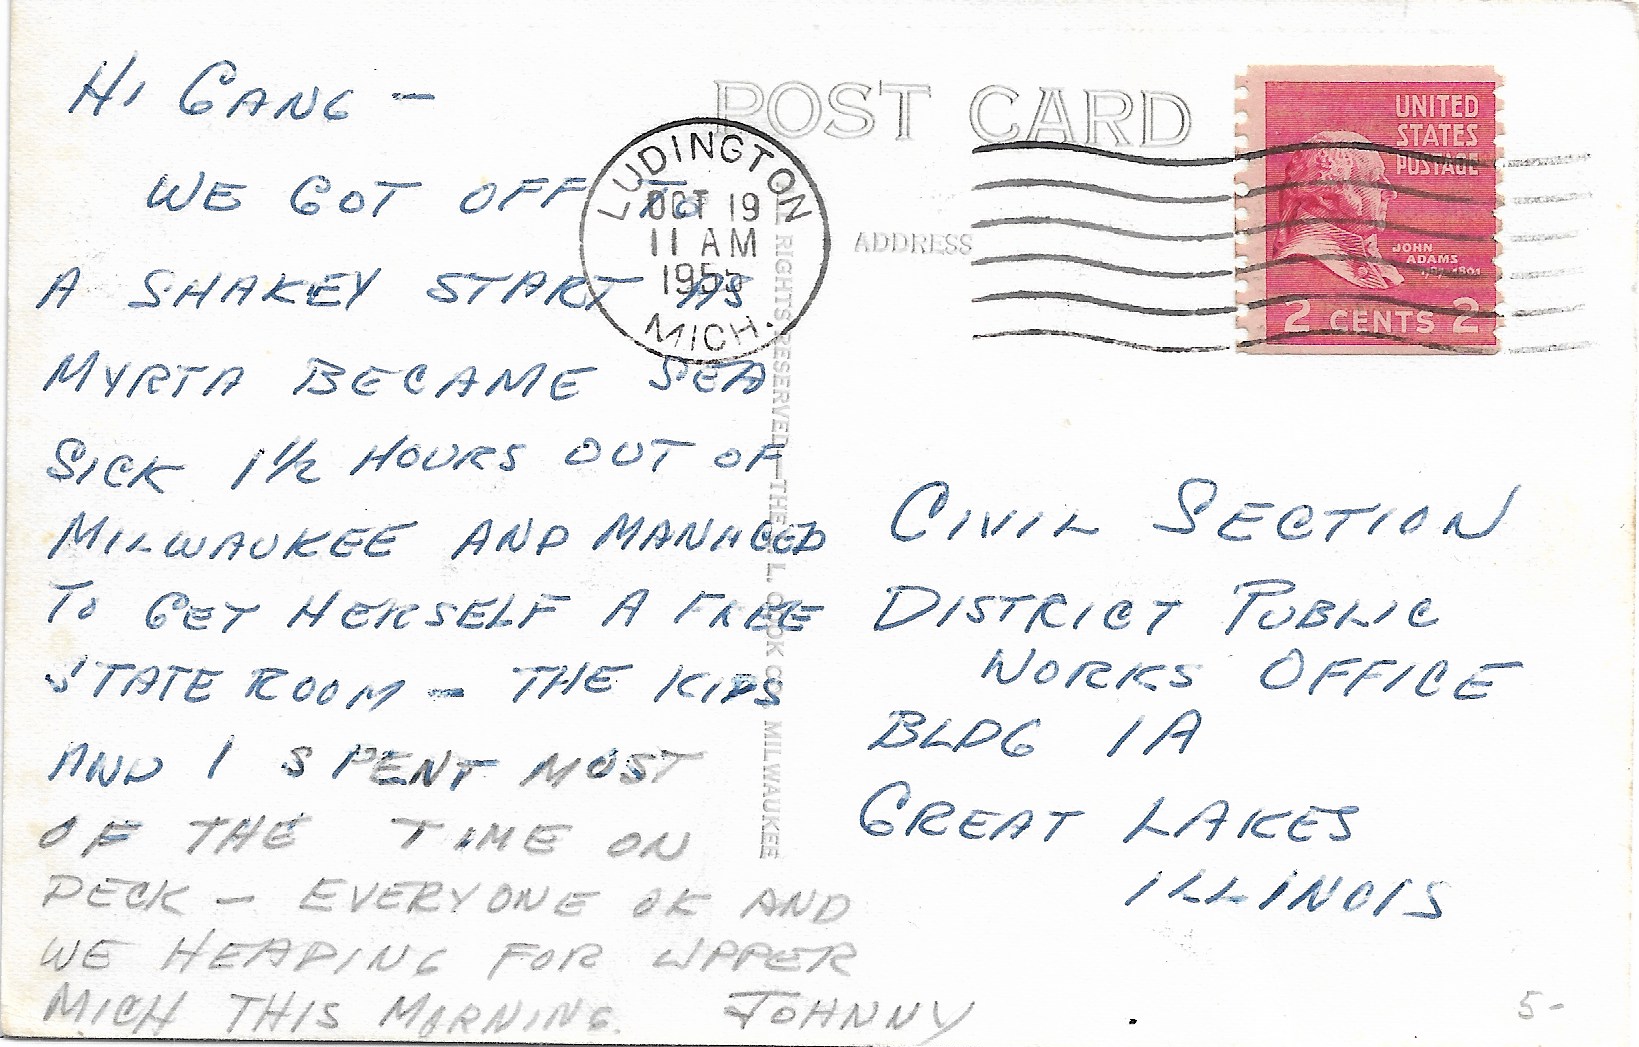 HI GANG —
WE GOT OFF TO
A SHAKEY START AS
MYRTA BECAME SEA
SICK 1½ HOURS OUT OF
MILWAUKEE AND MANAGED
TO GET HERSELF A FREE
STATE ROOM — THE KIDS
AND I SPENT MOST
OF THE TIME ON
DECK — EVERYONE OK AND
WE HEADING FOR UPPER
MICH THIS MORNING. JOHNNY
POST CARD
ADDRESS
LUDINGTON
OCT 19
11 AM
MICH.
UNITED
STATES
POSTAGE
JOHN
ADAMS
2 CENTS 2
RIGHTS RESERVED—THE L. COOK CO., MILWAUKEE
CIVIL SECTION
DISTRICT PUBLIC
WORKS OFFICE
BLDG 1A
GREAT LAKES
ILLINOIS
5-